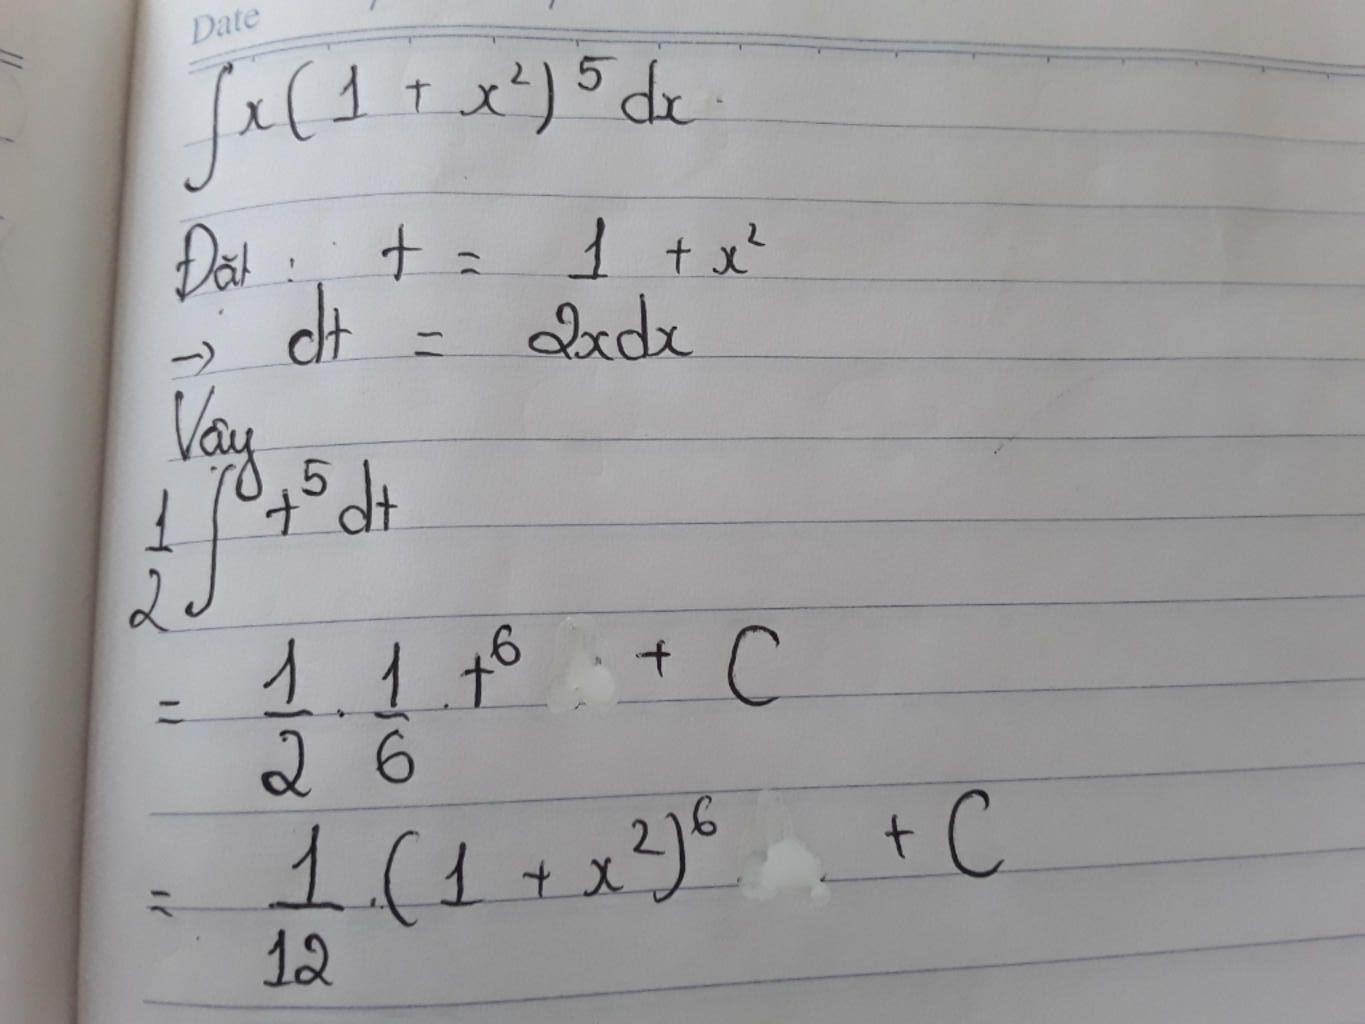 Date
∫x(1 + x²)⁵dx
Đặt : t = 1 + x²
→ dt = 2xdx
Vậy
1/2 ∫t⁵dt
= 1/2 . 1/6 . t⁶ + C
= 1/12 . (1 + x²)⁶ + C